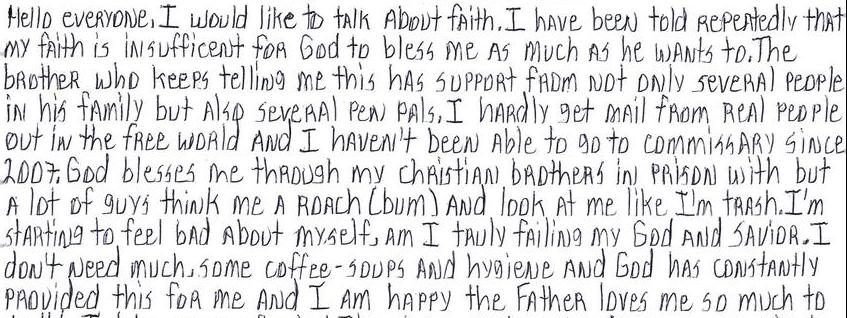 Hello everyone, I would like to talk about faith. I have been told repeatedly that
my faith is insufficent for God to bless me as much as he wants to. The
brother who keeps telling me this has support from not only several people
in his family but also several pen pals, I hardly get mail from real people
out in the free world and I haven't been able to go to commissary since
2007. God blesses me through my christian brothers in prison with but
a lot of guys think me a roach (bum) and look at me like I'm trash. I'm
starting to feel bad about myself, am I truly failing my God and savior. I
don't need much, some coffee-soups and hygiene and God has constantly
provided this for me and I am happy the Father loves me so much to